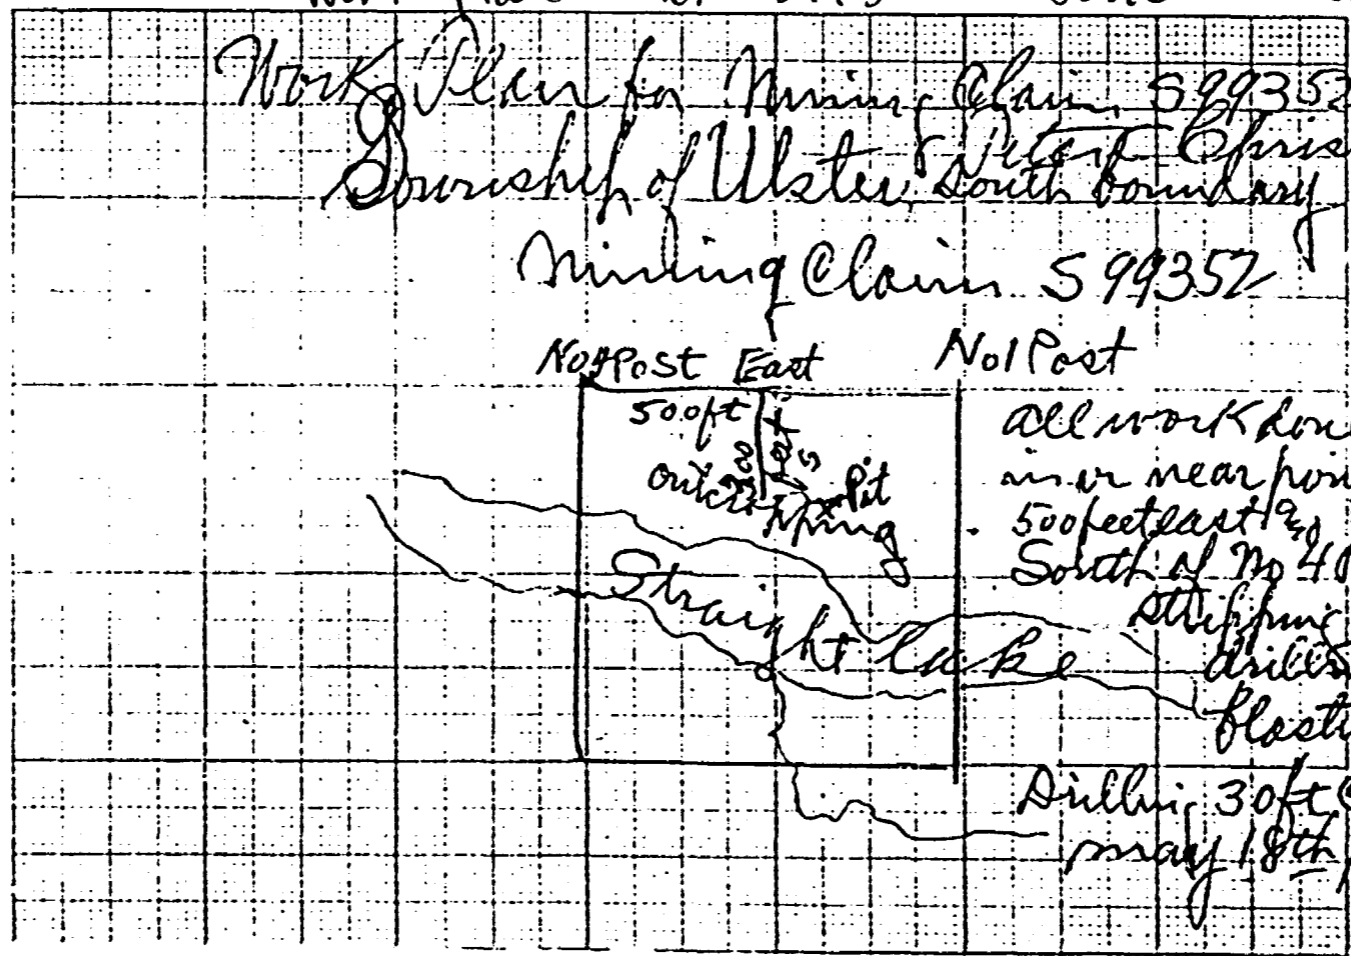 Work Plan for Mining Claim S99352
Township of Ulster, South boundary
Mining Claim S 99352
No 4 Post East
No 1 Post
500 ft
300
outcropping
Pit
Straight lake
all work don
in or near poin
500 feet east
South of No 4 P
stripping
drilli
blasti
Drilling 30 ft
may 18th